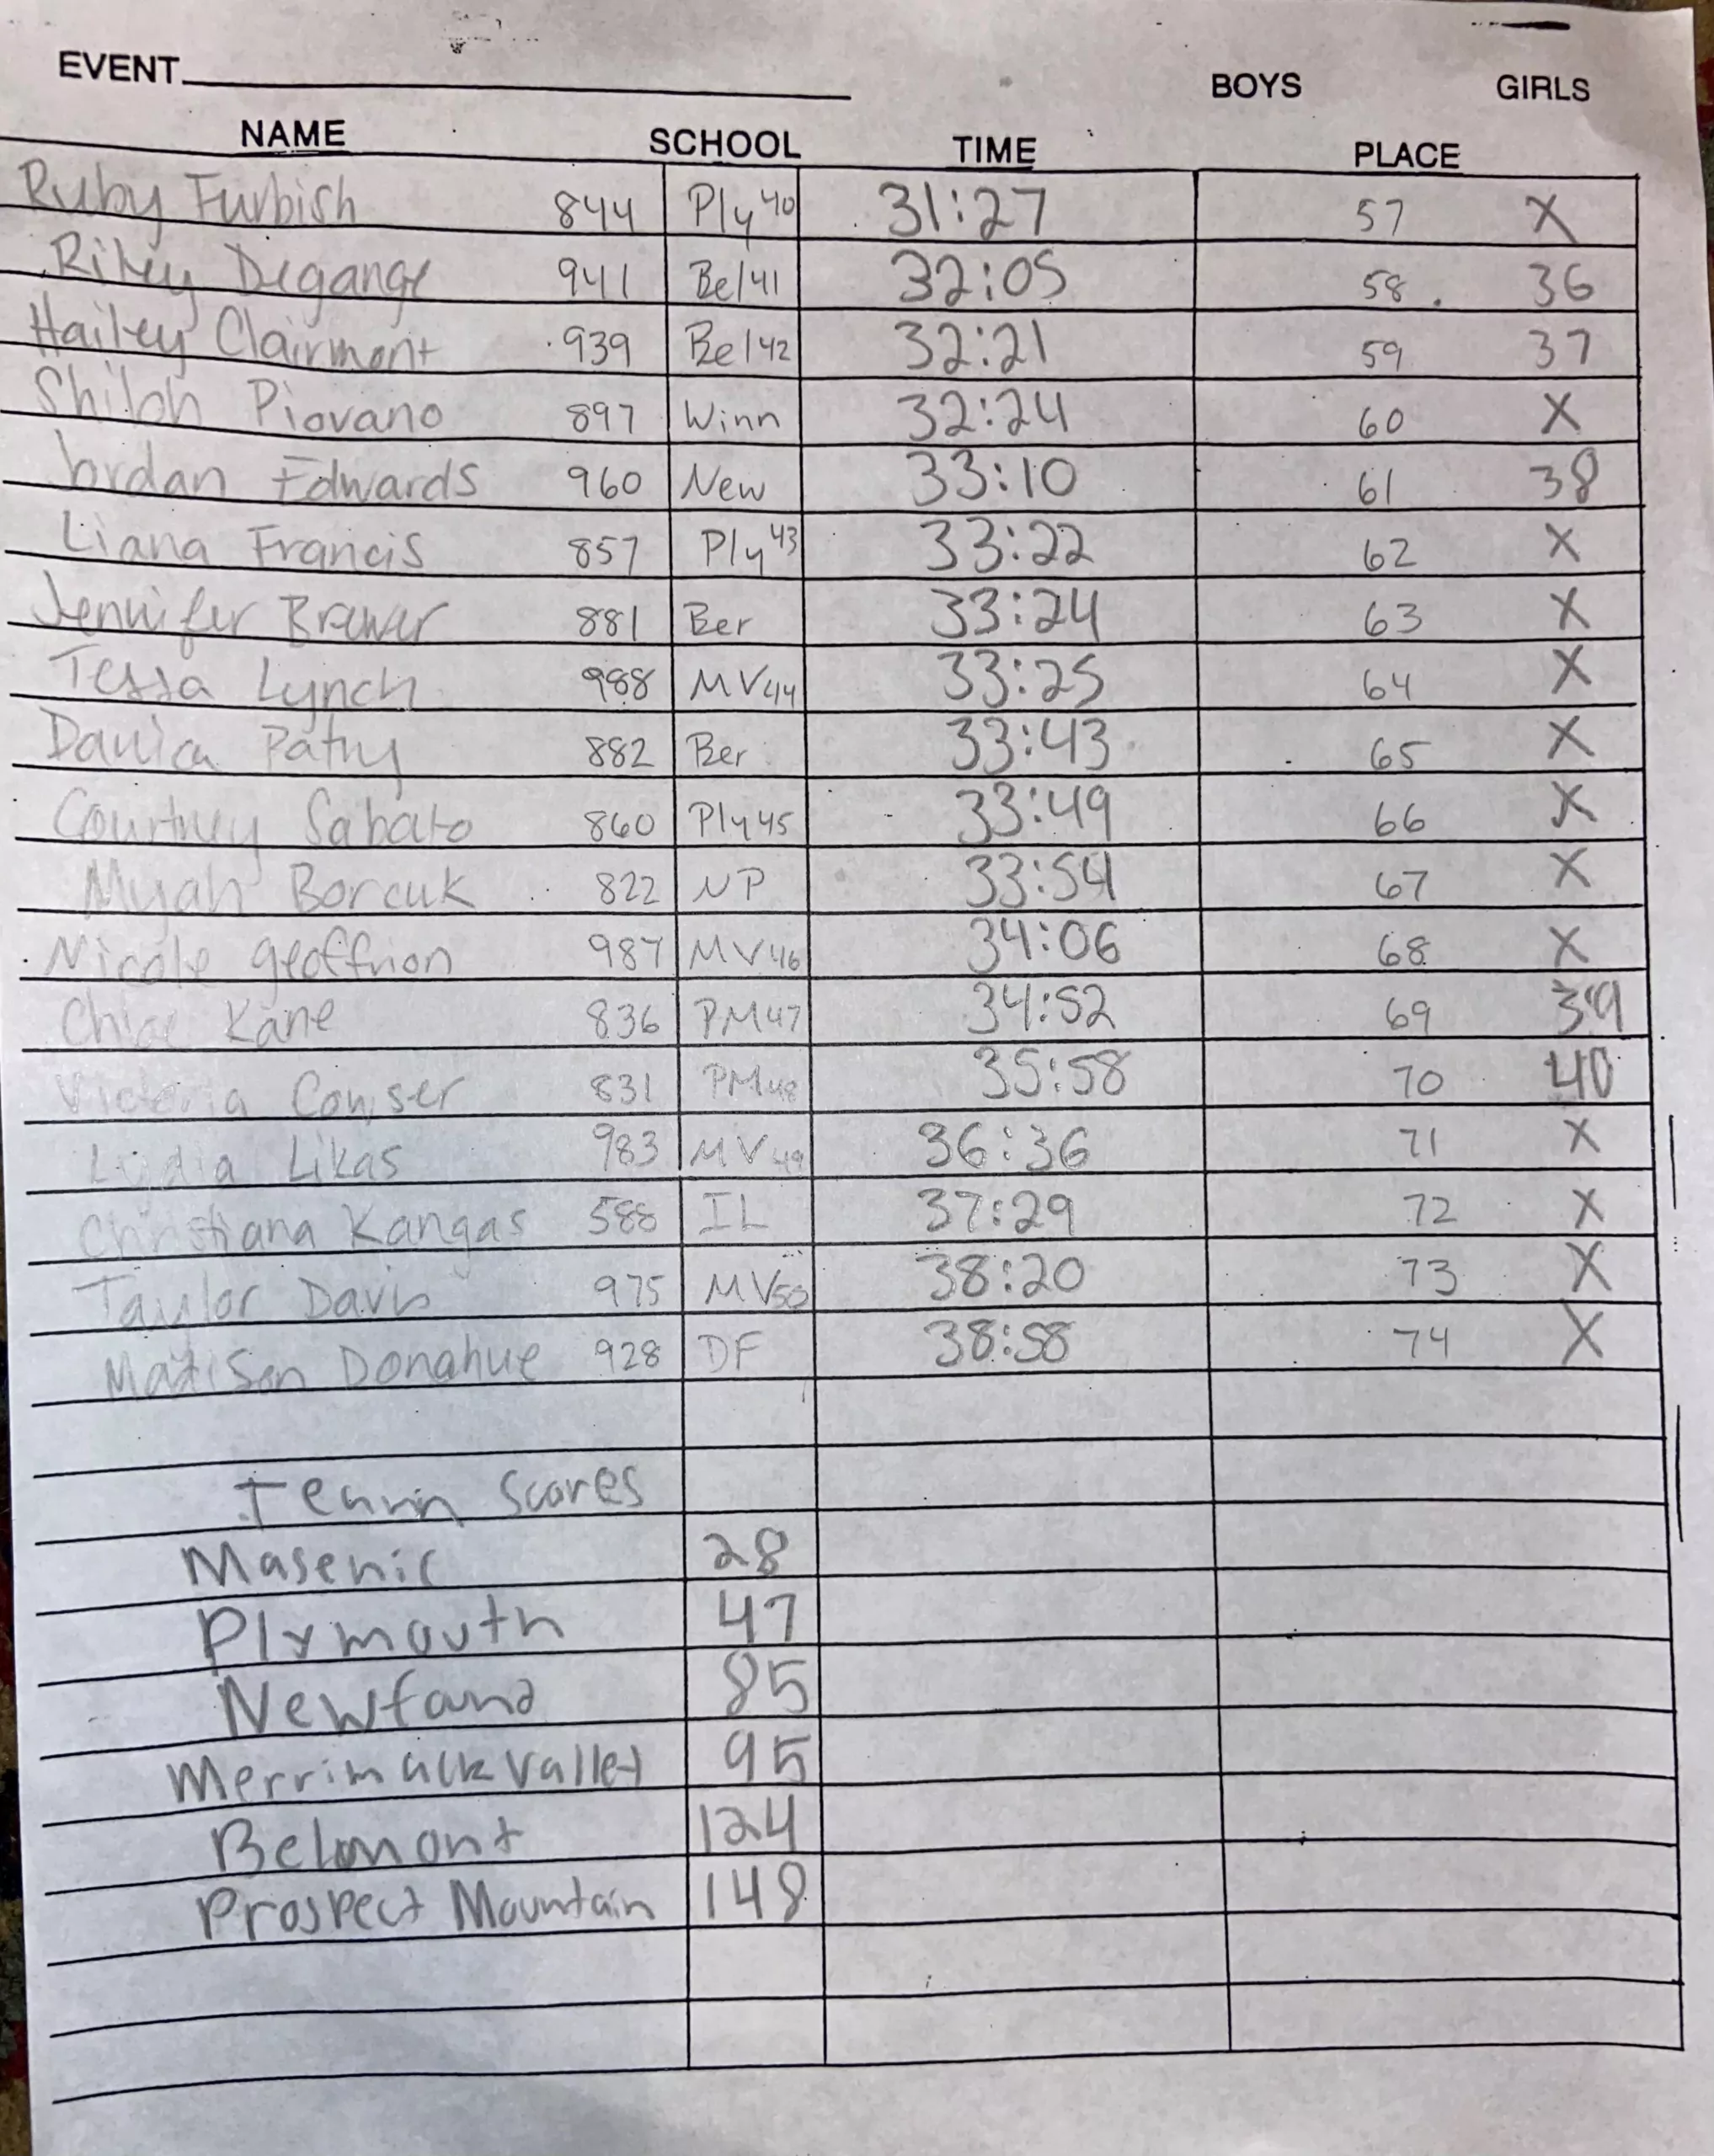 EVENT BOYS GIRLS
NAME SCHOOL TIME PLACE
Ruby Furbish 844 Ply 40 31:27 57 X
Riley Degange 941 Bel 41 32:05 58 36
Hailey Clairmont 939 Bel 42 32:21 59 37
Shiloh Piovano 897 Winn 32:24 60 X
Jordan Edwards 960 New 33:10 61 38
Liana Francis 857 Ply 43 33:22 62 X
Jennifer Brewer 881 Ber 33:24 63 X
Tessa Lynch 988 MV 44 33:25 64 X
Danica 882 Ber 33:43 65 X
Courtney Sabato 860 Ply 45 33:49 66 X
Myah Borcuk 822 NP 33:54 67 X
Nicole Geoffrion 987 MV 46 34:06 68 X
Chloe Kane 836 PM 47 34:52 69 39
Victoria 831 PM 48 35:58 70 40
Lydia Likas 983 MV 49 36:36 71 X
Christiana Kangas 588 IL 37:29 72 X
Taylor Davis 975 MV 50 38:20 73 X
Madison Donahue 928 DF 38:58 74 X
Team Scores
Masenic 28
Plymouth 47
Newfand 85
Merrimack Valley 95
Belmont 124
Prospect Mountain 148